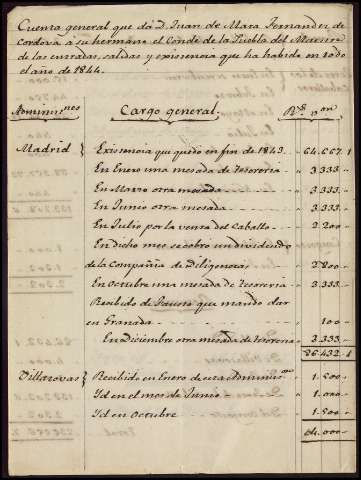 Cuenta general que dá D. Juan de Mata Fernandez de
Cordova, á su hermano el Conde de la Puebla del Maestre
de las entradas, salidas y existencia que ha habido en todo
el año de 1844.
Adminis.nes Cargo general. R.s v.on
Madrid} Existencia que quedó en fin de 1843 64.667.. 1
En Enero una mesada de Tesoreria 3.333..
En Marzo otra mesada 3.333..
En Junio otra mesada 3.333..
En Julio por la venta del Caballo 2.200..
En dicho mes se cobro un dividendo
de la Compañia de Diligencias 2.800..
En Octubre una mesada de Tesoreria 3.333..
Recibido de que mandó dar
en Granada 100..
En Diciembre otra mesada de Tesoreria 3.333..
86.432.. 1
Villanovas} Recibido en Enero de esta Adminis.on 1.500..
Id en el mes de Junio 1.000..
Id en Octubre 1.500..
4.000..